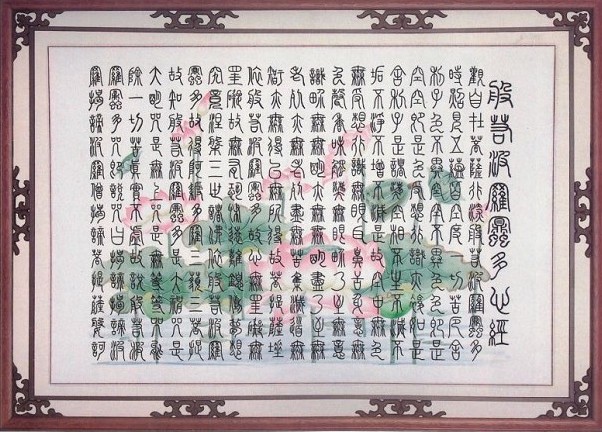 般若波羅蜜多心經
觀自在菩薩行深般若波羅蜜多
時照見五蘊皆空度一切苦厄舍
利子色不異空空不異色色即是
空空即是色受想行識亦復如是
舍利子是諸法空相不生不滅不
垢不淨不增不減是故空中無色
無受想行識無眼耳鼻舌身意無
色聲香味觸法無眼界乃至無意
識界無無明亦無無明盡乃至無
老死亦無老死盡無苦集滅道無
智亦無得以無所得故菩提薩埵
依般若波羅蜜多故心無罣礙無
罣礙故無有恐怖遠離顛倒夢想
究竟涅槃三世諸佛依般若波羅
蜜多故得阿耨多羅三藐三菩提
故知般若波羅蜜多是大神咒是
大明咒是無上咒是無等等咒能
除一切苦真實不虛故說般若波
羅蜜多咒即說咒曰揭諦揭諦波
羅揭諦波羅僧揭諦菩提薩婆訶